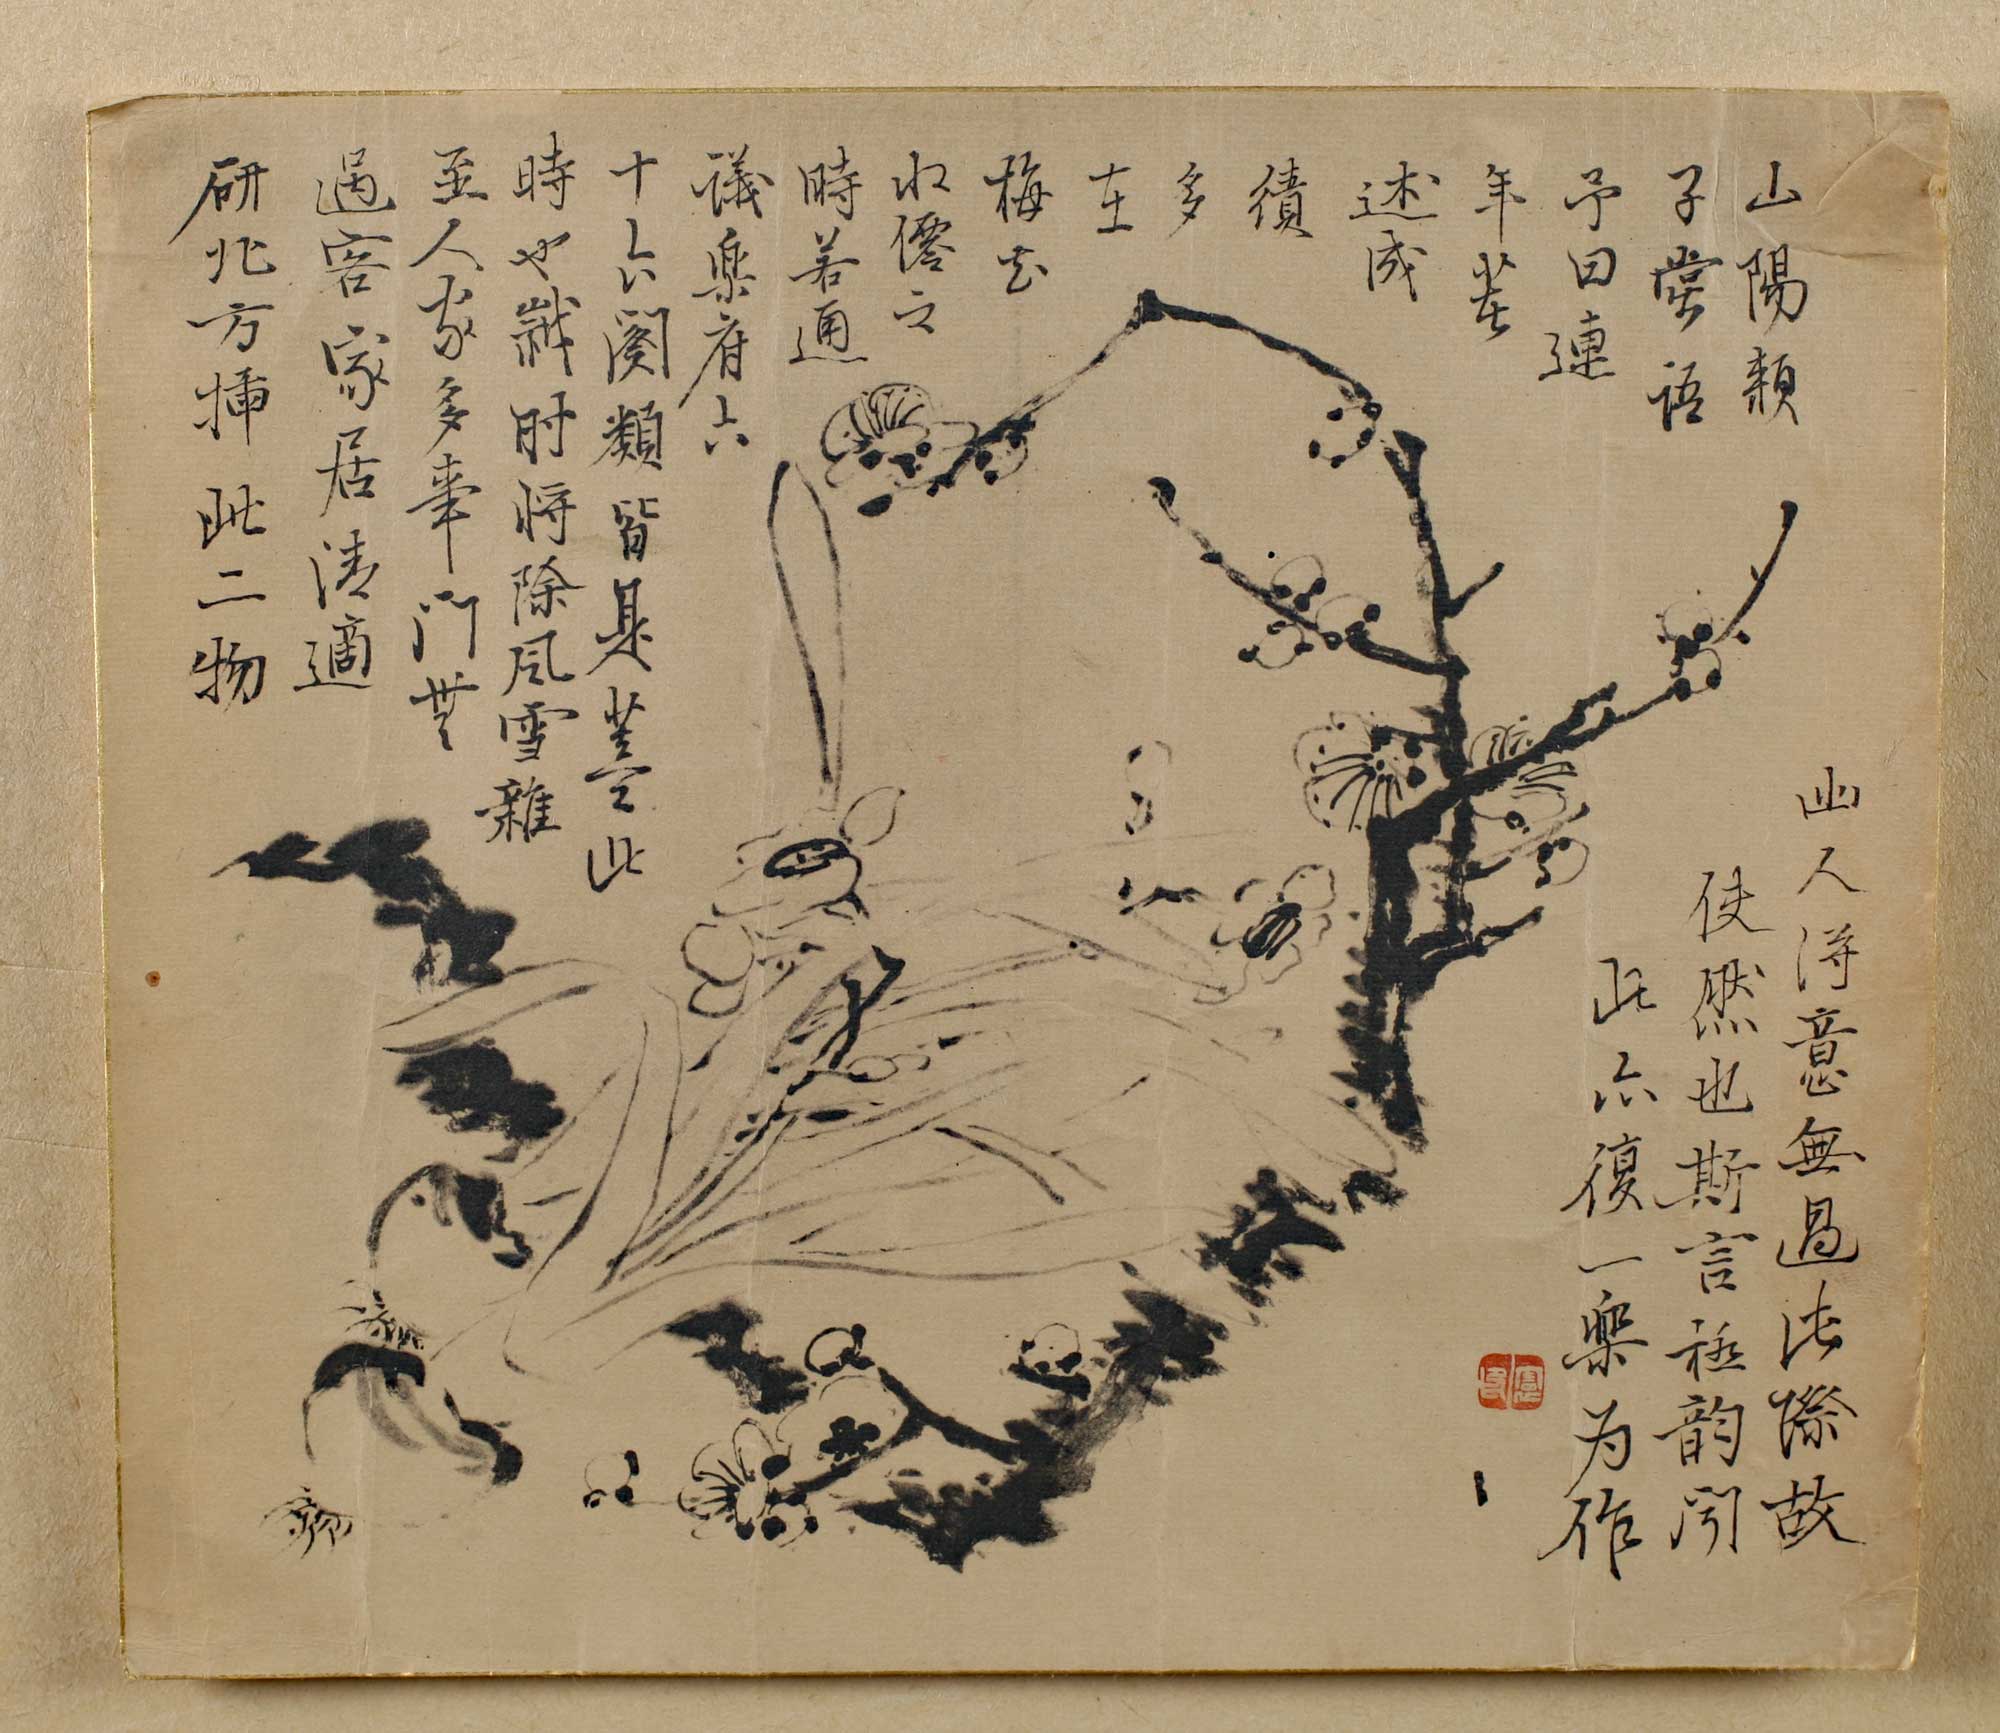 山陽頼
子嘗語
予曰連
年著
述成
績
多
在
梅花
水僊之
時若通
議樂府六
十六闋類皆是蓋此
時也歳時將除風雪雜
至人家多事門無
過客家居清適
研北方插此二物
幽人得意無過此際故
使然也斯言極韵閑
此亦復一樂為作